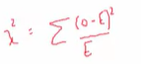 χ² = Σ (O-E)² / E